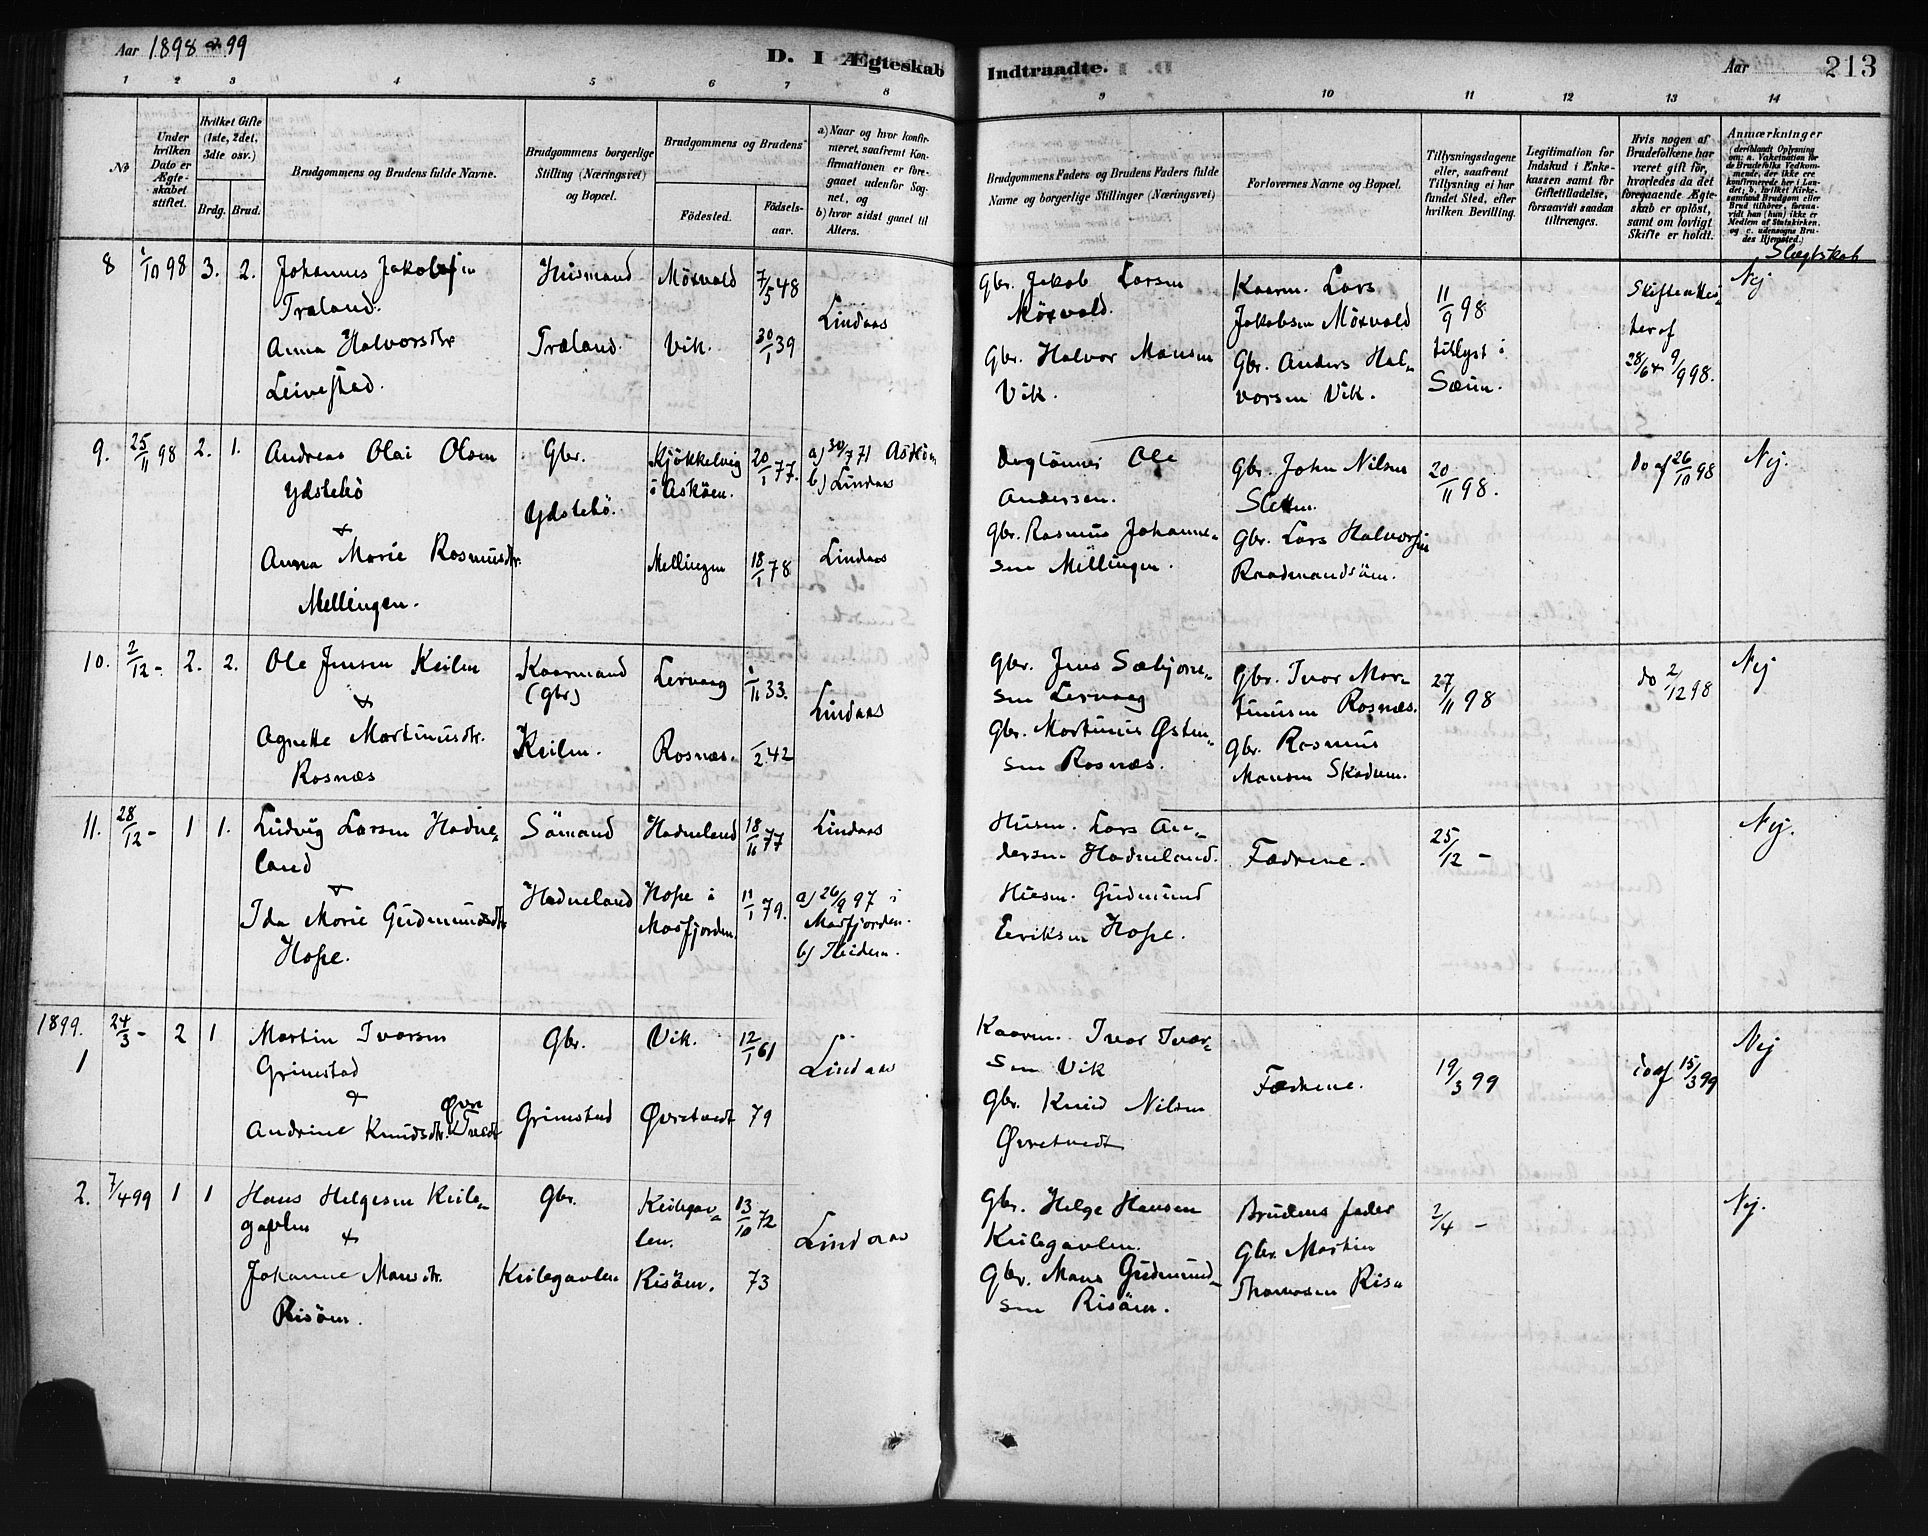 Aar 1898 & 99
D. I Ægteskab
Indtraadte.
Aar
213
1 2 3 4 5 6 7 8 9 10 11 12 13 14
№
Under hvilken Dato er Ægteskabet stiftet.
Hvilket Gifte (1ste, 2det, 3die osv.)
Brdg. Brud.
Brudgommens og Brudens fulde Navne.
Brudgommens borgerlige Stilling (Næringsvei) og Bopæl.
Brudgommens og Brudens
Fødested.
Fødselsaar.
a) Naar og hvor konfirmeret, saafremt Konfirmationen er foregaaet udenfor Sognet, og
b) hvor sidst gaaet til Alters.
Brudgommens Faders og Brudens Faders fulde Navne og borgerlige Stillinger (Næringsvei)
Forlovernes Navne og Bopæl.
Tillysningsdagene eller, saafremt Tillysning ei har fundet Sted, efter hvilken Bevilling.
Legitimation for Indskud i Enkekassen samt for Giftetilladelse, forsaavidt saadan tiltrænges.
Hvis nogen af Brudefolkene har været gift før, hvorledes da det foregaaende Ægteskab er opløst, samt om lovligt Skifte er holdt.
Anmærkninger (deriblandt Oplysning om: a. Vakcination for de Brudefolks Vedkommende, der ikke ere konfirmerede her i Landet; b. hvilket Kirkesamfund Brudgom eller Brud tilhører, forsaavidt han (hun) ikke er Medlem af Statskirken, og c. udensogns Brudes Hjemsted.)
Slægtskab
8 1/10 98 3. 2. Johannes Jakobsen
Træland.
Anna Halvorsdtr
Leivestad.
Husmand
Træland.
Moxvold
Vik.
7/5 48
30/1 39
Lindaas
Gbr. Jakob Larsen
Moxvold.
Gbr. Halvor Monsen
Vik.
Kaarm. Lars
Jakobsen Moxvold
Gbr. Anders Hal-
vorsen Vik.
11/9 98
tillyst i
Sæim.
Skifteattest
her af
28/6 & 9/9 98.
Nej
9. 25/11 98 2. 1. Andreas Olai Olsen
Ydstebö
+
Anna Marie Rasmusdtr.
Mellingen.
Gbr.
Ydstebö.
Kjökkelvig
i Asköen.
Mellingen
20/1 77.
18/1 78
a) 30/7 71 Asköen
b) Lindaas
Lindaas
Ole
Andersen.
Gbr. Rasmus Johanne-
sen Mellingen.
Gbr. John Nilsen
Sletten.
Gbr. Lars Halvorsen
Raadmandsöen.
20/11 98.
do af 26/10 98
Nej.
10. 2/12 - 2. 2. Ole Jensen Keilen
+
Agnette Martinusdtr.
Rosnæs
Kaarmand
(Gbr)
Keilen.
Lervaag
Rosnæs.
1/11 33.
1/2 42
Lindaas
Gbr. Jens Sæbjörn-
sen Lervaag
Gbr. Martinus Østen-
sen Rosnæs.
Gbr. Ivar Mar-
tinusen Rosnæs.
Gbr. Rasmus
Monsen Skodven.
27/11 98
do 2/12 98
Nej
11. 28/12 - 1 1. Ludvig Larsen Hodne-
land
+
Ida Marie Gudmundsdtr
Hope.
Sömand
Hodneland
Hodneland
Hope i
Masfjorden.
18/11 77
11/1 79.
Lindaas
a) 26/9 97 i
Masfjorden.
b)
Husm. Lars An-
dersen Hodneland.
Husm. Gudmund
Eeriksen Hope.
Fædrene.
25/12 -
Nej.
1899.
1 24/3 - 2 1 Martin Ivarsen
Grimstad
+
Andrine Knudsdtr. Øvre
Tvedt
Gbr.
Grimstad
Vik.
Øvretvedt
12/1 61
79
Lindaas
Kaarm. Ivar Ivar-
sen Vik
Gbr. Knud Nilsen
Øvretvedt
Fædrene.
19/3 99
do af 15/3 99
Nej
2. 7/4 99 1 1 Hans Helgesen Keile-
gavlen
+
Johanne Monsdtr.
Risöen.
Gbr.
Keilegavlen
Keilegav-
len.
Risöen.
13/10 72
73
Lindaas
Gbr. Helge Hansen
Keilegavlen.
Gbr. Mons Gudmund-
sen Risöen.
Brudens fader
Gbr. Martin
Thomasen Risö
2/4 -
Nej.